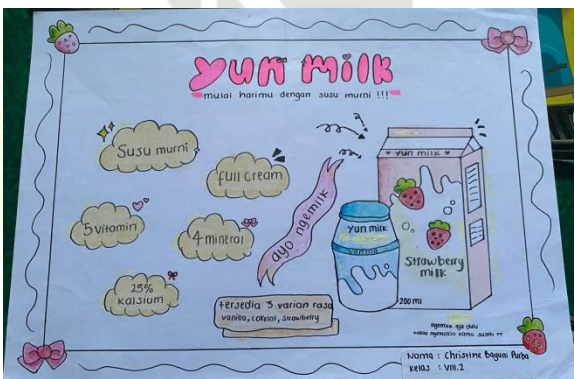 yun milk
mulai harimu dengan susu murni !!!
Susu murni
full cream
5 vitamin
4 mineral
25%
kalsium
ayo ngemilk
tersedia 3 varian rasa
vanilla, cokelat, strawberry
yun milk
vanilla
yun milk
Strawberry
milk
200 ml
ngemilk aja dulu
Nama : Christine Baguni Purba
kelas : VIII.2